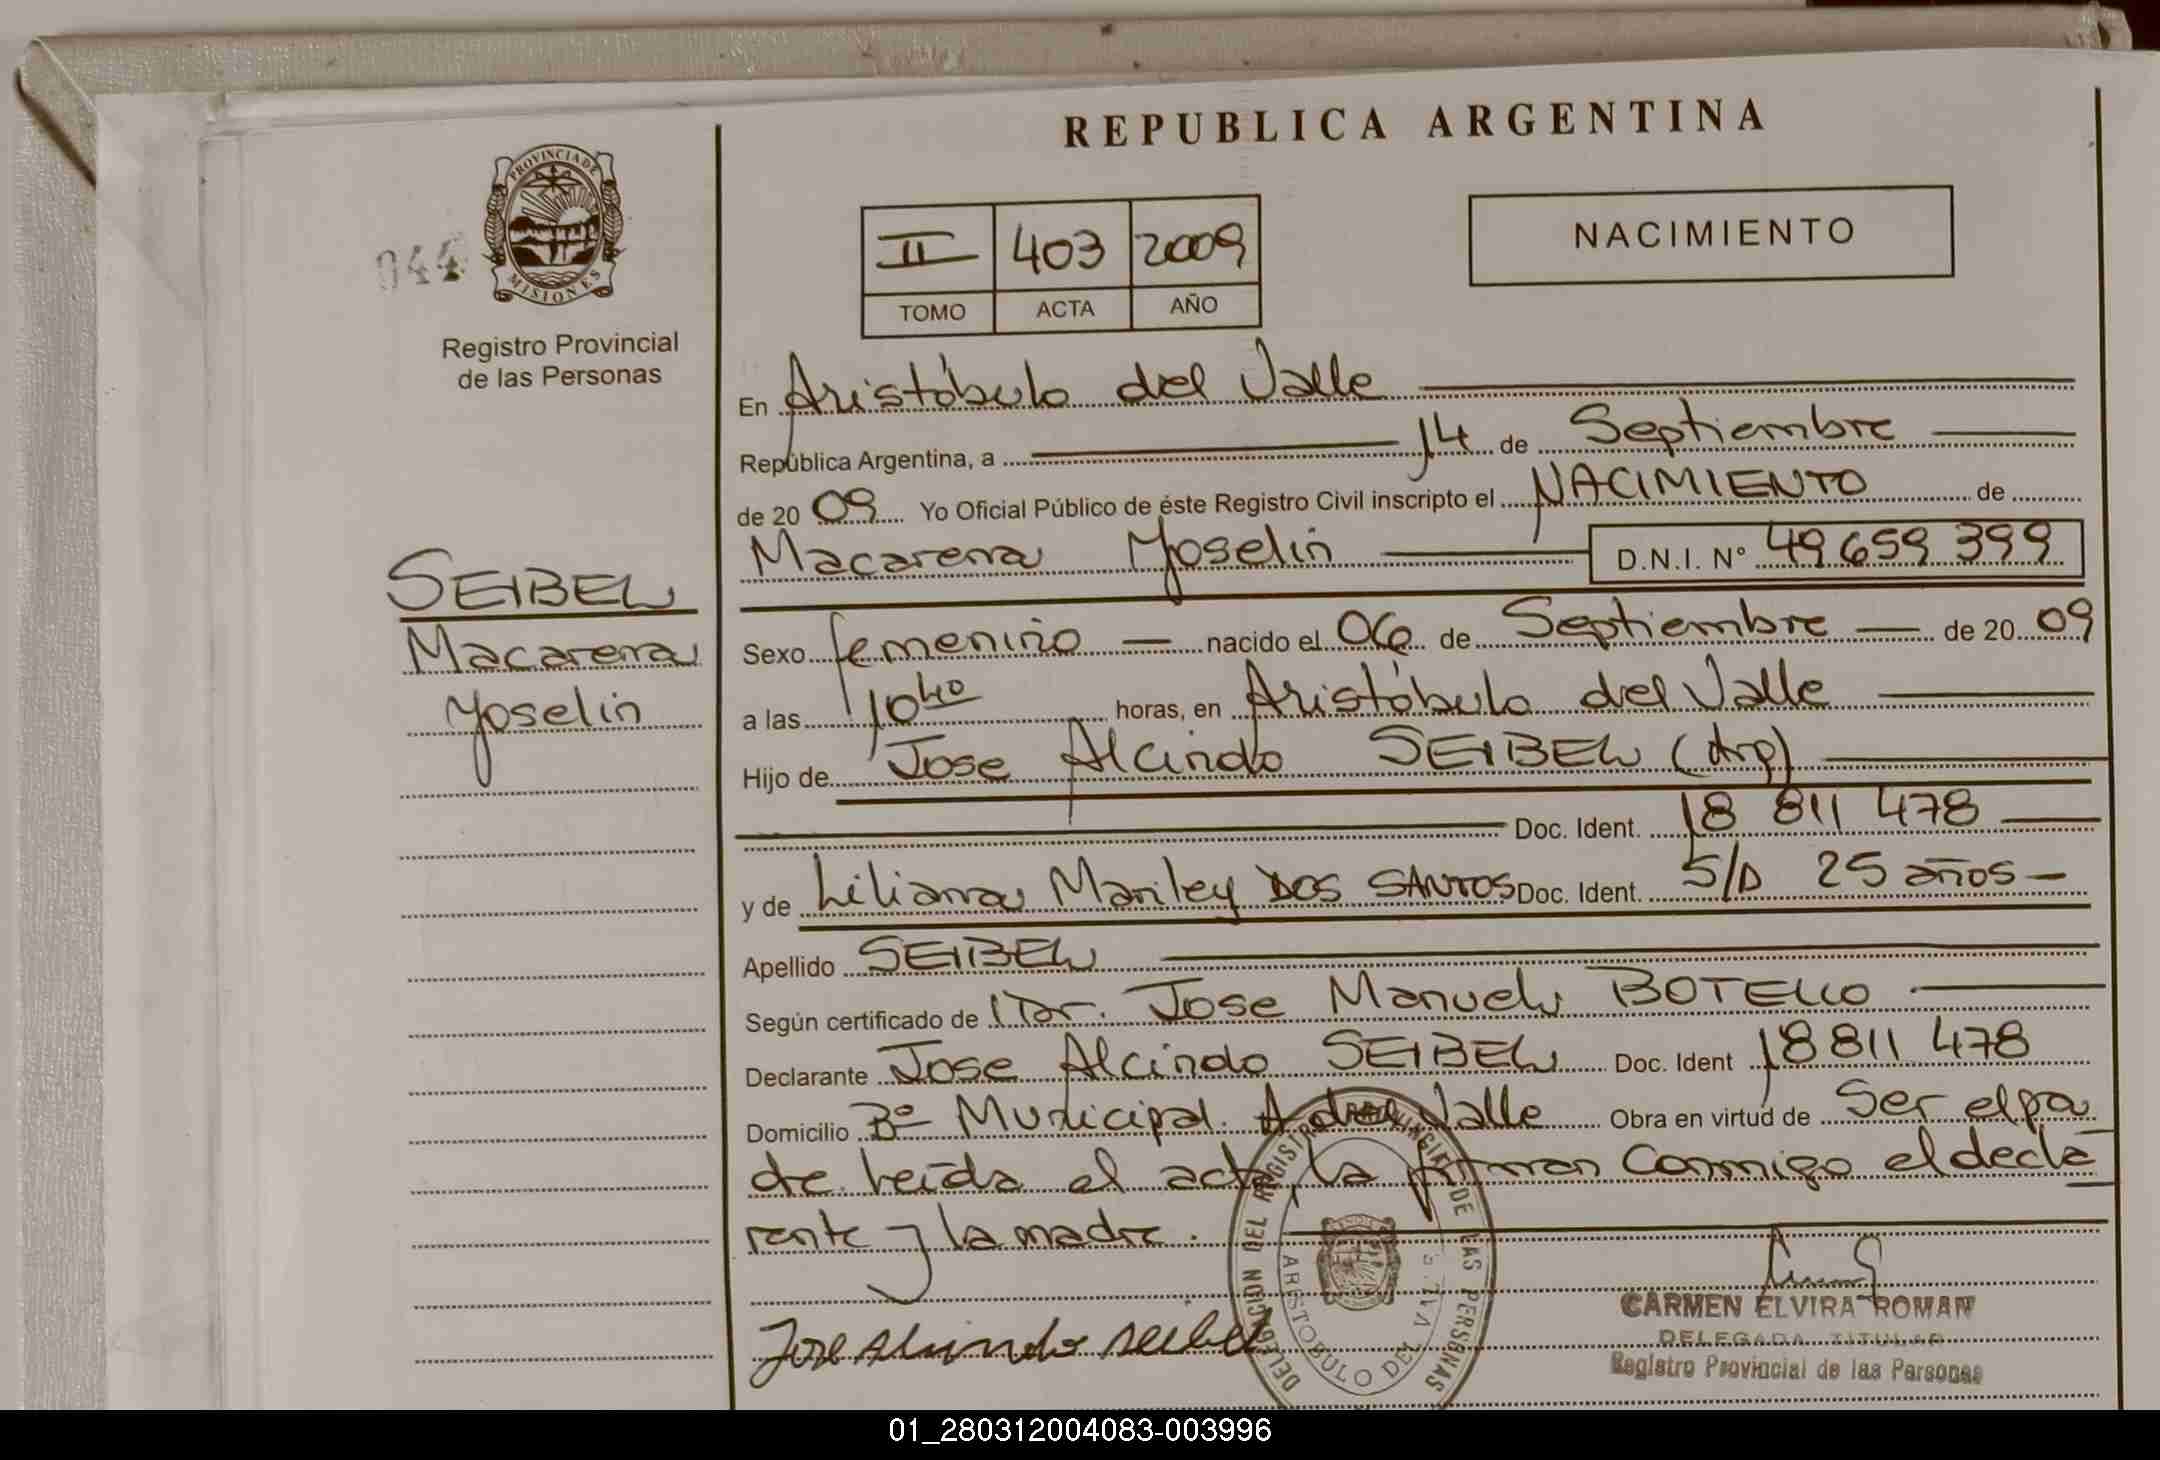 REPUBLICA ARGENTINA
PROVINCIA DE
MISIONES
044
Registro Provincial
de las Personas
II 403 2009
TOMO ACTA AÑO
NACIMIENTO
SEIBEL
Macarena
Yoselin
En Aristóbulo del Valle
República Argentina, a 14 de Septiembre
de 2009 Yo Oficial Público de éste Registro Civil inscripto el NACIMIENTO de
Macarena Yoselin D.N.I. Nº 49 659 399
Sexo femenino nacido el 06 de Septiembre de 2009
a las 10 40 horas, en Aristóbulo del Valle
Hijo de Jose Alcindo SEIBEL (Arg)
Doc. Ident. 18 811 478
y de Liliana Mariley DOS SANTOS Doc. Ident. S/D 25 años
Apellido SEIBEL
Según certificado de Dr. Jose Manuel BOTELLO
Declarante Jose Alcindo SEIBEL Doc. Ident 18 811 478
Domicilio Bº Municipal. A del Valle Obra en virtud de Ser el pa
dre. Leída el acta, la firman conmigo el decla
rante y la madre.
Jose Alcindo Seibel
DELEGACION DEL REGISTRO PROVINCIAL DE LAS PERSONAS
ARISTOBULO DEL VALLE
CARMEN ELVIRA ROMAN
DELEGADA TITULAR
Registro Provincial de las Personas
01_280312004083-003996